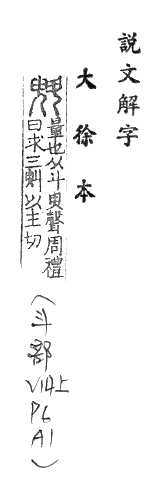 說文解字
大徐本
斞
量也从斗臾聲周禮
曰求三斞以主切
(斗部V14上P6A1)